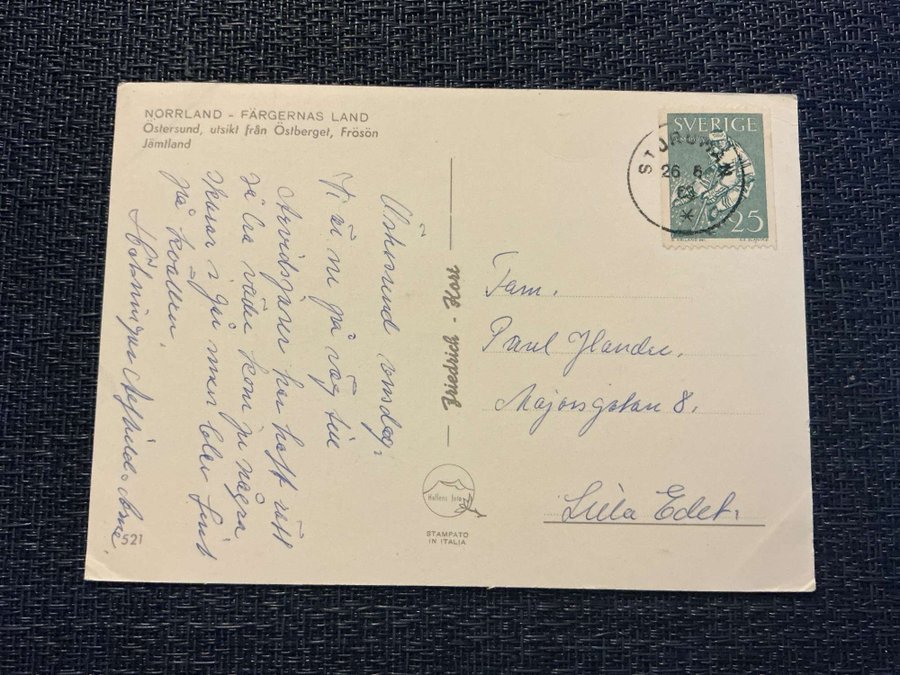 NORRLAND - FÄRGERNAS LAND
Östersund, utsikt från Östberget, Frösön
Jämtland
Östersund onsdag.
Vi är nu på väg till
Arvidsjaur har haft rätt
så bra väder kom ju några
skurar i går men blev fint
på kvällen.
Hälsningar Arne
521
Friedrich - Kort
Hallens foto
STAMPATO
IN ITALIA
SVERIGE
25
STORUMAN
26 8
63
Fam.
Paul
Majorsgatan 8.
Lilla Edet.